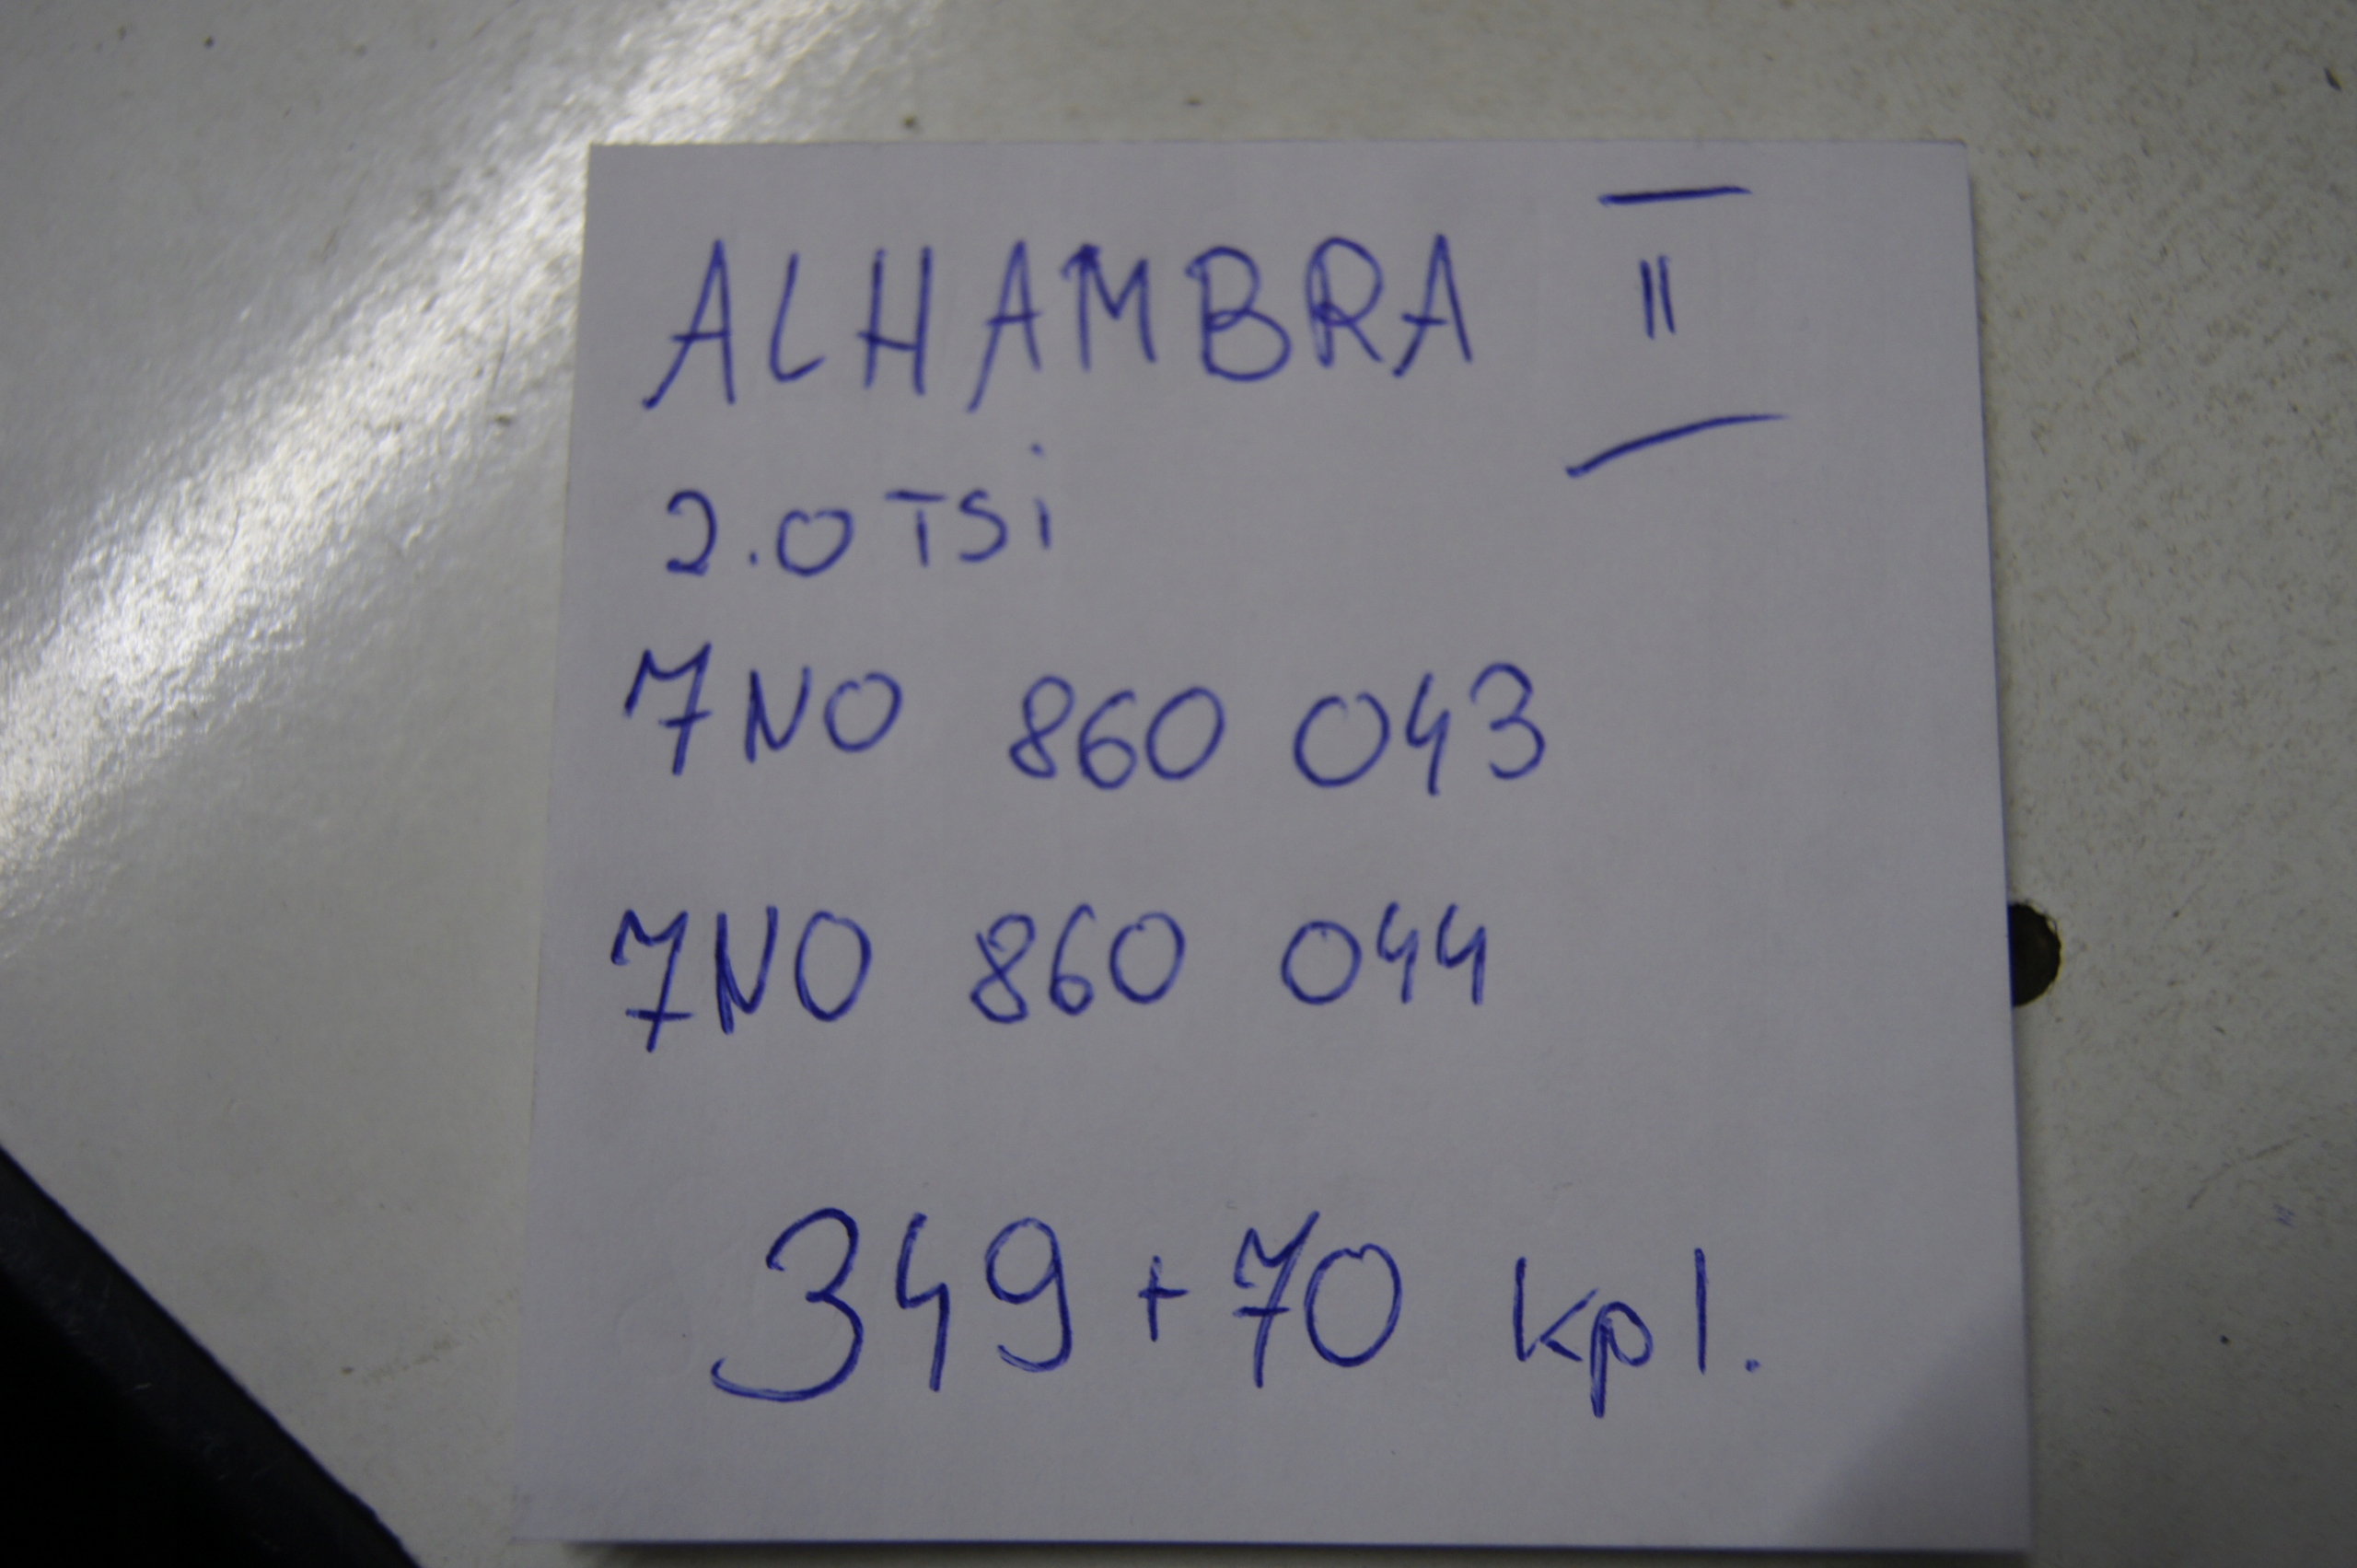 ALHAMBRA II
2.0 TSi
7N0 860 043
7N0 860 044
349 + 70 kpl.